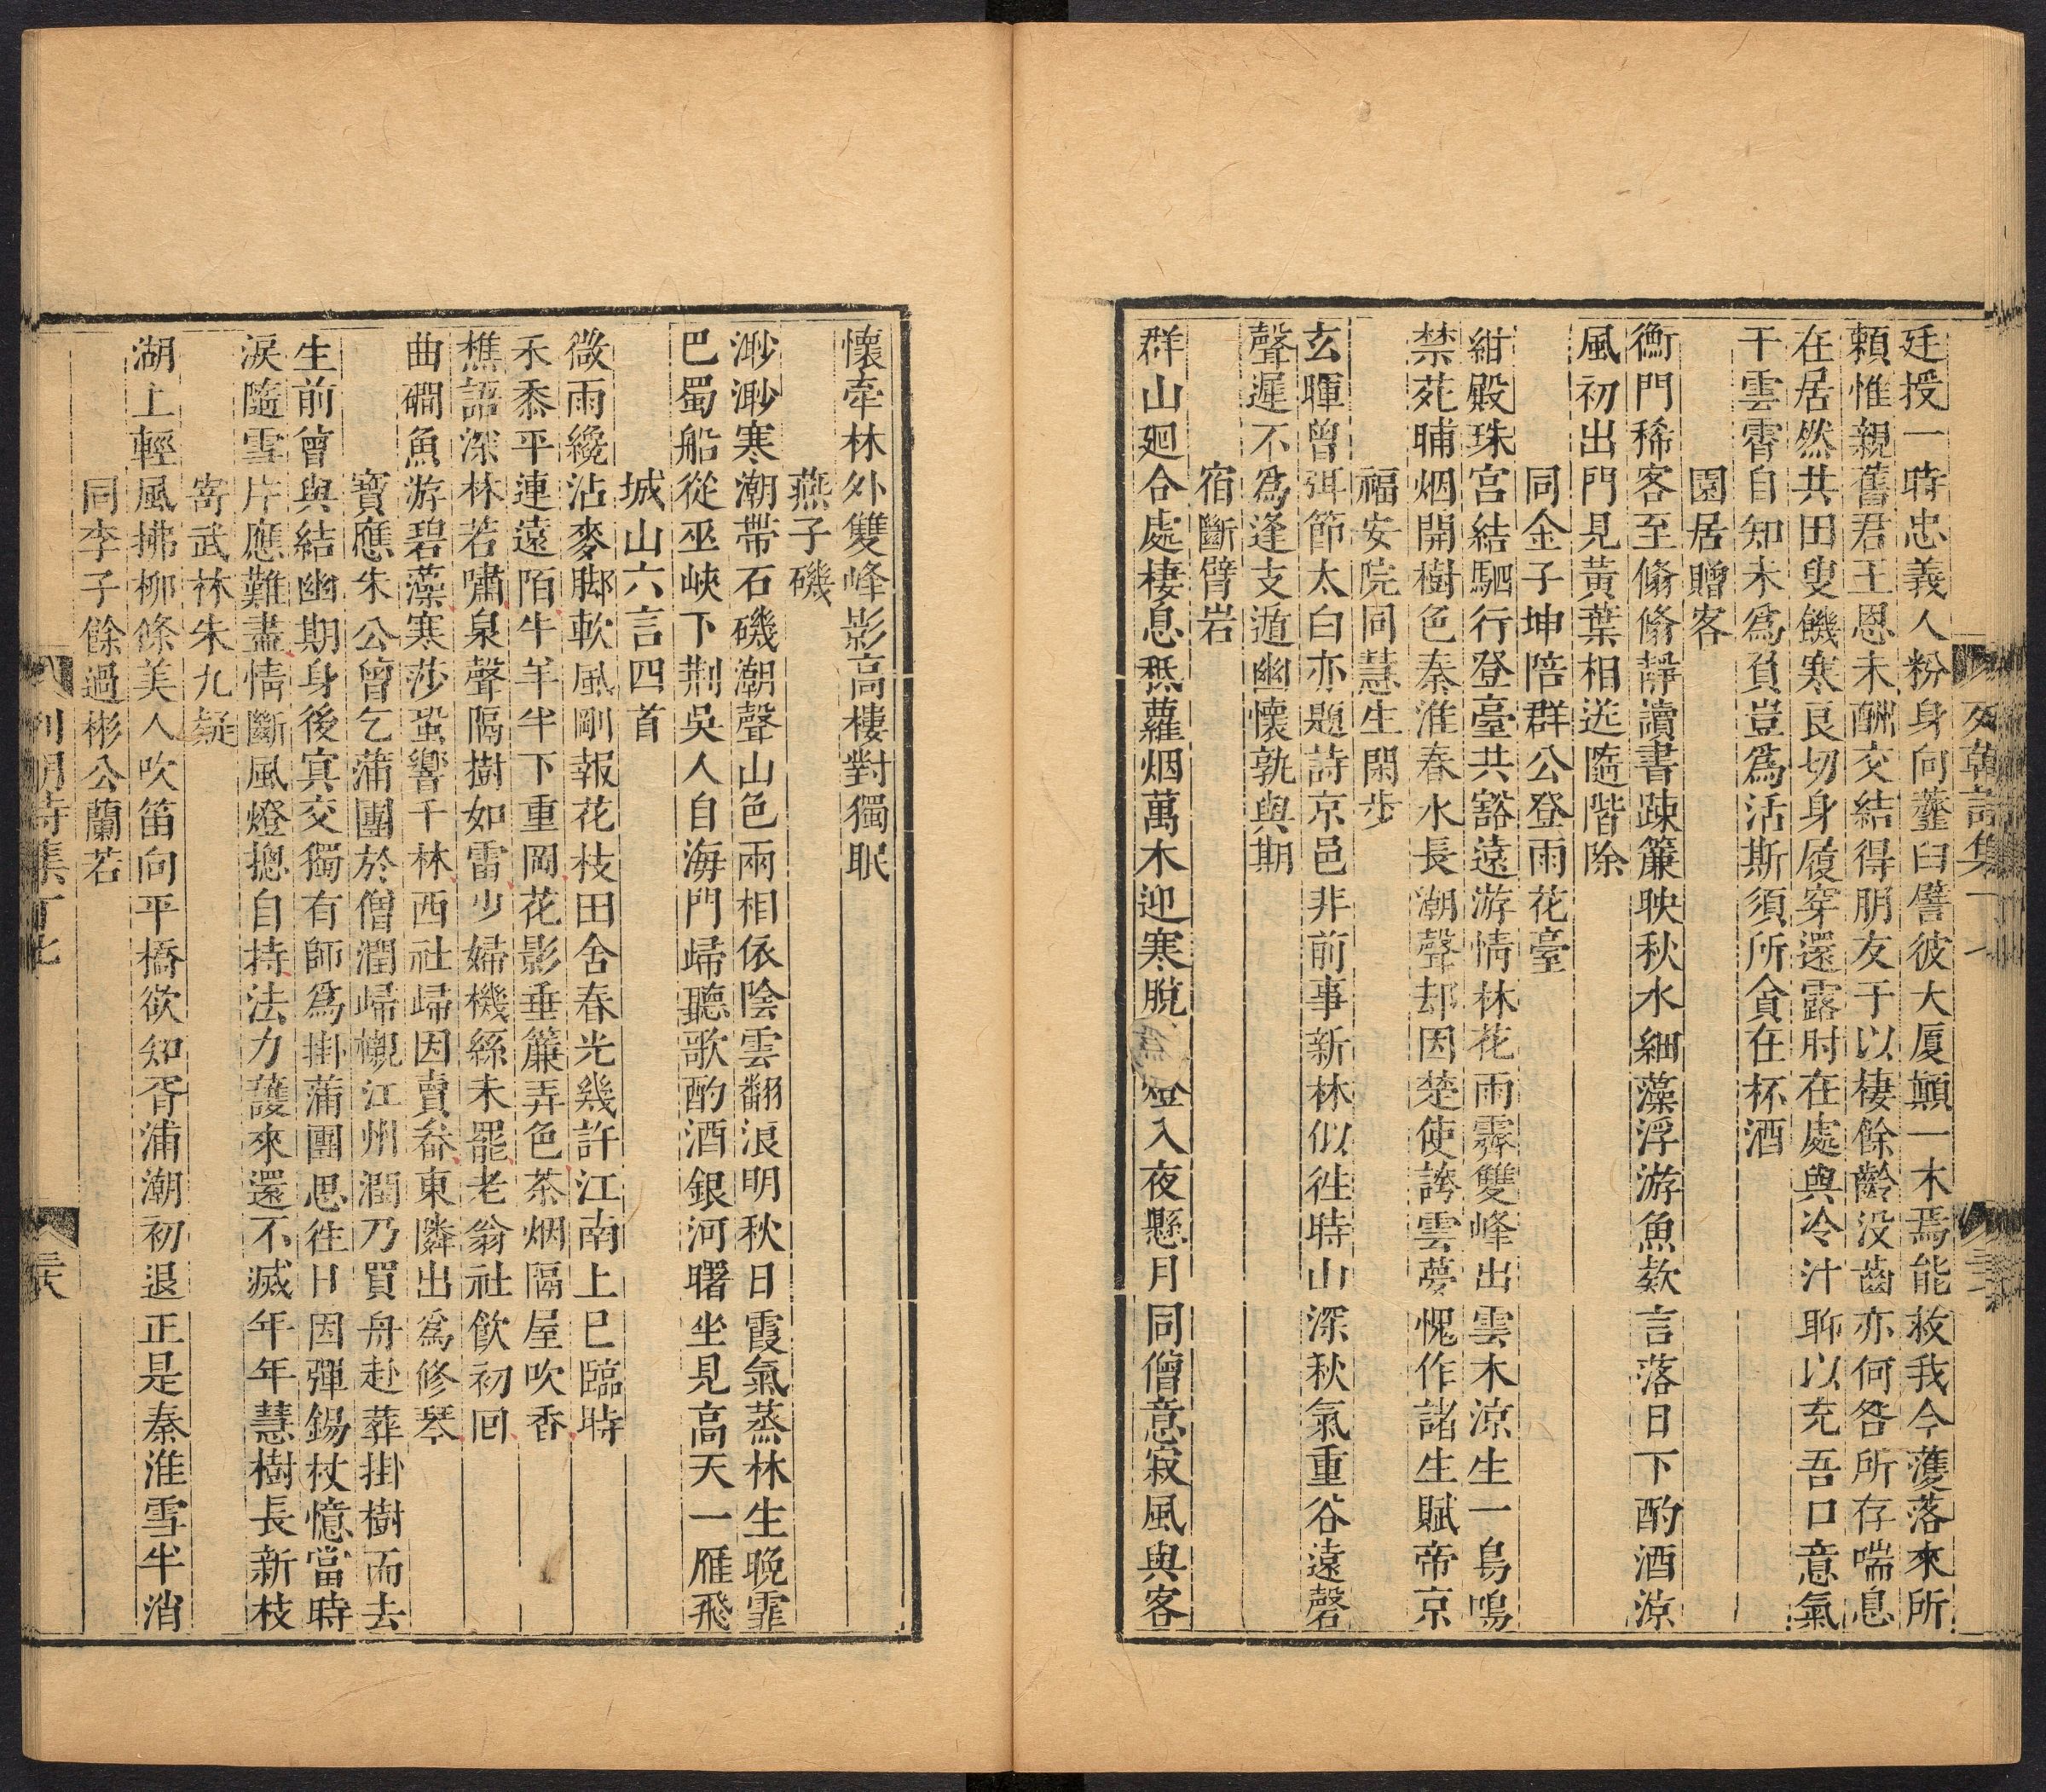 廷授一時忠義人粉身向虀臼譬彼大厦顛一木焉能救我今濩落來所
賴惟親舊君王恩未酬交結得朋友于以棲餘齡没齒亦何咎所存喘息
在居然共田叟饑寒良切身履穿還露肘在處與冷汁聊以充吾口意氣
干雲霄自知未爲負豈爲活斯須所貪在杯酒
園居贈客
衡門稀客至翛翛靜讀書疎簾映秋水細藻浮游魚欵言落日下酌酒涼
風初出門見黃葉相送隨階除
同金子坤陪群公登雨花臺
紺殿珠宮結駟行登臺共豁遠游情林花雨霽雙峰出雲木涼生一鳥鳴
禁苑晡烟開樹色秦淮春水長潮聲却因楚使誇雲夢愧作諸生賦帝京
福安院同慧生閑步
玄暉曾弭節太白亦題詩京邑非前事新林似徃時山深秋氣重谷遠磬
聲遲不爲逢支遁幽懷孰與期
宿斷臂岩
群山廻合處棲息蔾蘿烟萬木迎寒脫 燈入夜懸月同僧意寂風與客
懷牽林外雙峰影高樓對獨眠
燕子磯
渺渺寒潮帶石磯潮聲山色兩相依陰雲翻浪明秋日霞氣蒸林生晚霏
巴蜀船從巫峽下荆吳人自海門歸聽歌酌酒銀河曙坐見高天一雁飛
城山六言四首
微雨纔沾麥脚軟風剛報花枝田舍春光幾許江南上巳臨時
禾黍平連遠陌牛羊半下重岡花影垂簾弄色茶烟隔屋吹香
樵語深林若嘯泉聲隔樹如雷少婦機絲未罷老翁社飲初回
曲磵魚游碧藻寒莎蛩響千林西社歸因賣畚東隣出爲修琴
寶應朱公曾乞蒲團於僧潤歸櫬江州潤乃買舟赴葬掛樹而去
生前曾與結幽期身後寘交獨有師爲掛蒲團思徃日因彈錫杖憶當時
淚隨雪片應難盡情斷風燈揔自持法力護來還不滅年年慧樹長新枝
寄武林朱九疑
湖上輕風拂柳條美人吹笛向平橋欲知胥浦潮初退正是秦淮雪半消
同李子餘過彬公蘭若
列朝詩集丁七
三六